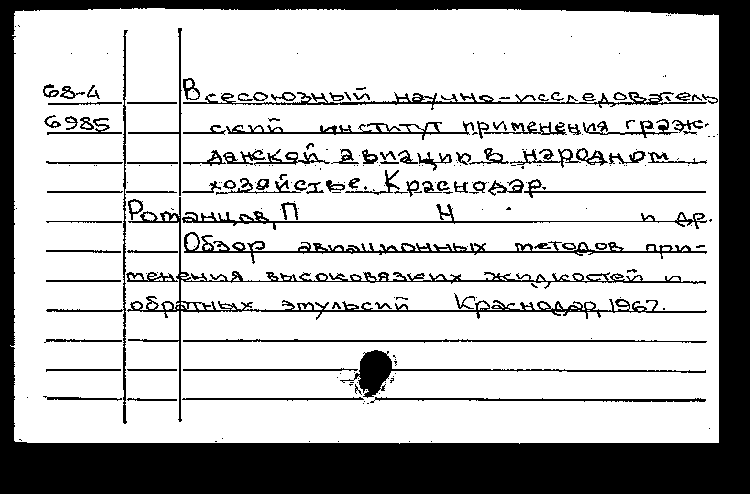 68-4 Всесоюзный научно-исследователь
6985 ский институт применения граж-
данской авиации в народном
хозяйстве. Краснодар.
Ротанцов, П Н и др.
Обзор авиационных методов при-
менения высоковязких жидкостей и
обратных эмульсий Краснодар, 1967.